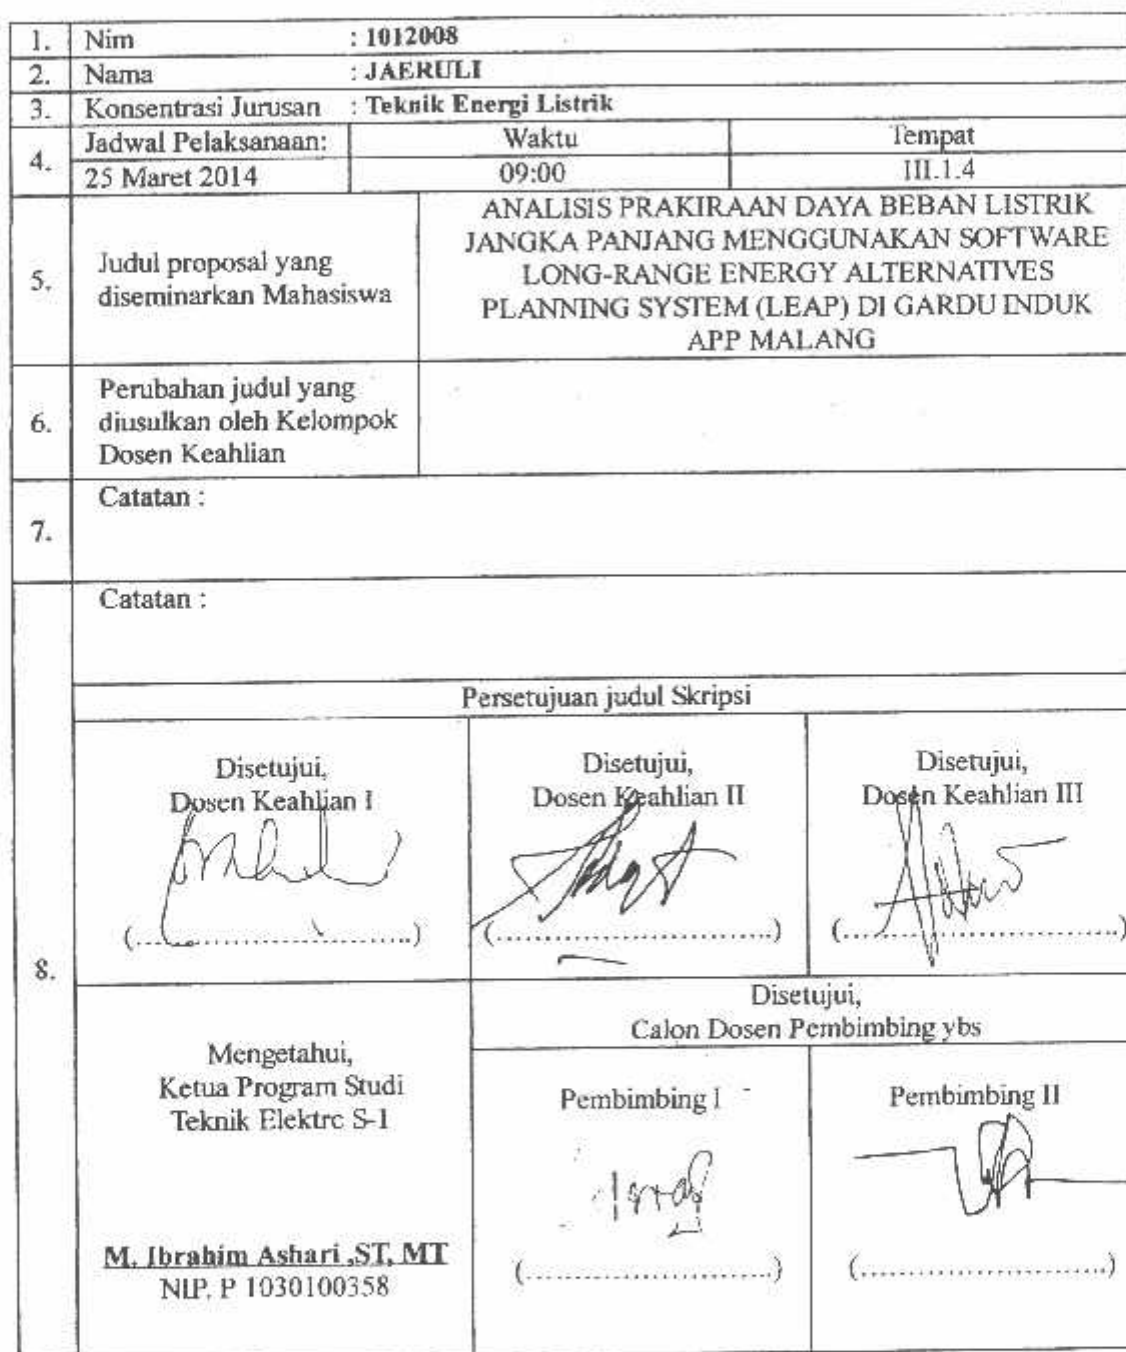 1. Nim : 1012008
2. Nama : JAERULI
3. Konsentrasi Jurusan : Teknik Energi Listrik
4. Jadwal Pelaksanaan: Waktu Tempat
25 Maret 2014 09:00 III.1.4
5. Judul proposal yang diseminarkan Mahasiswa
ANALISIS PRAKIRAAN DAYA BEBAN LISTRIK
JANGKA PANJANG MENGGUNAKAN SOFTWARE
LONG-RANGE ENERGY ALTERNATIVES
PLANNING SYSTEM (LEAP) DI GARDU INDUK
APP MALANG
6. Perubahan judul yang
diusulkan oleh Kelompok
Dosen Keahlian
7. Catatan :
8. Catatan :
Persetujuan judul Skripsi
Disetujui,
Dosen Keahlian I
(........................)
Disetujui,
Dosen Keahlian II
(........................)
Disetujui,
Dosen Keahlian III
(........................)
Mengetahui,
Ketua Program Studi
Teknik Elektro S-1
M. Ibrahim Ashari ,ST, MT
NIP. P 1030100358
Disetujui,
Calon Dosen Pembimbing ybs
Pembimbing I
(........................)
Pembimbing II
(........................)